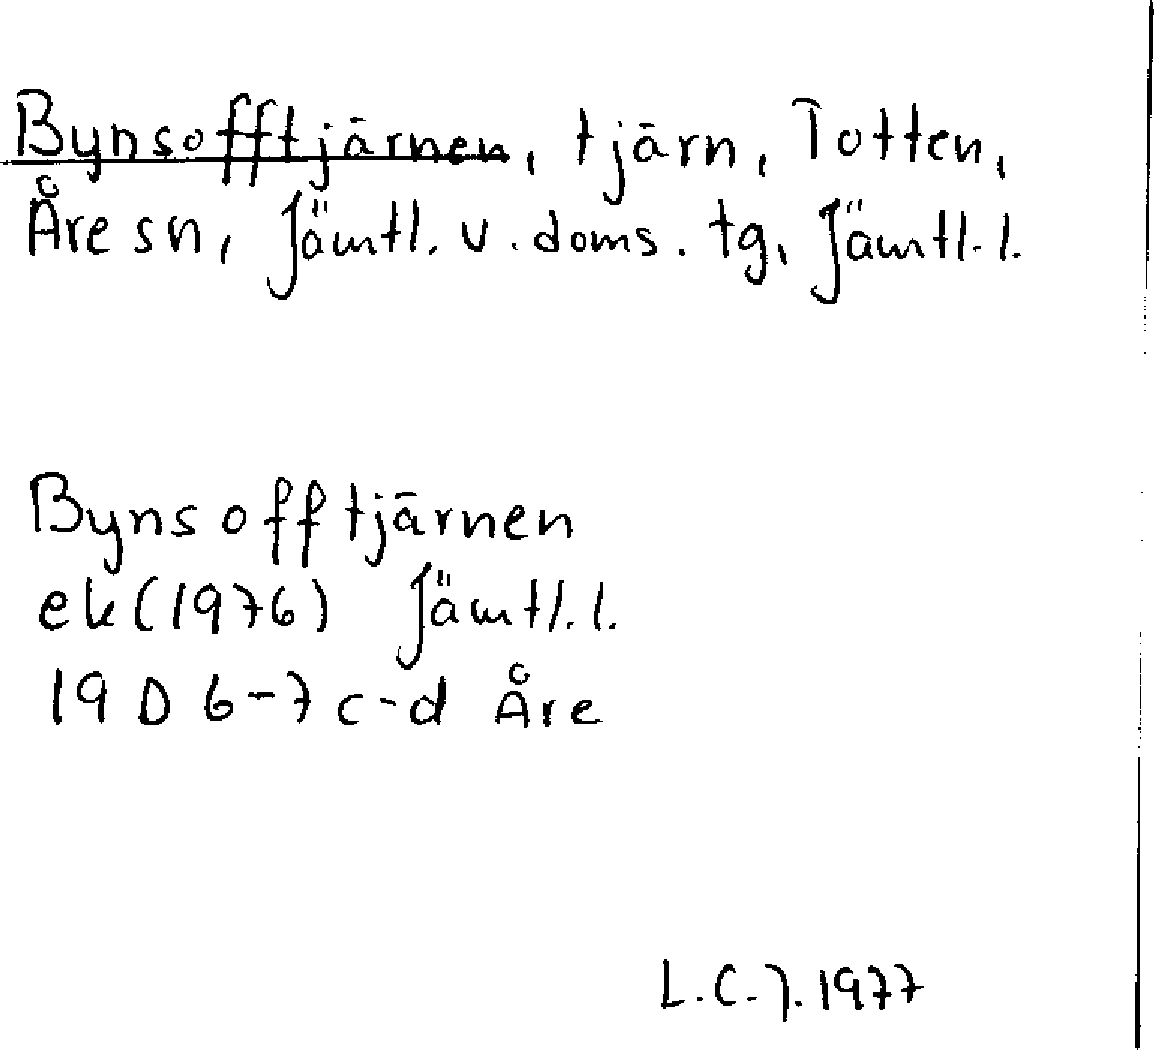 Bynsofftjärnen, tjärn, Totten,
Åre sn, Jämtl. v. doms. tg, Jämtl. l.
Bynsofftjärnen
ek (1976) Jämtl. l.
19 D 6-7 c-d Åre
L.C.J. 1977